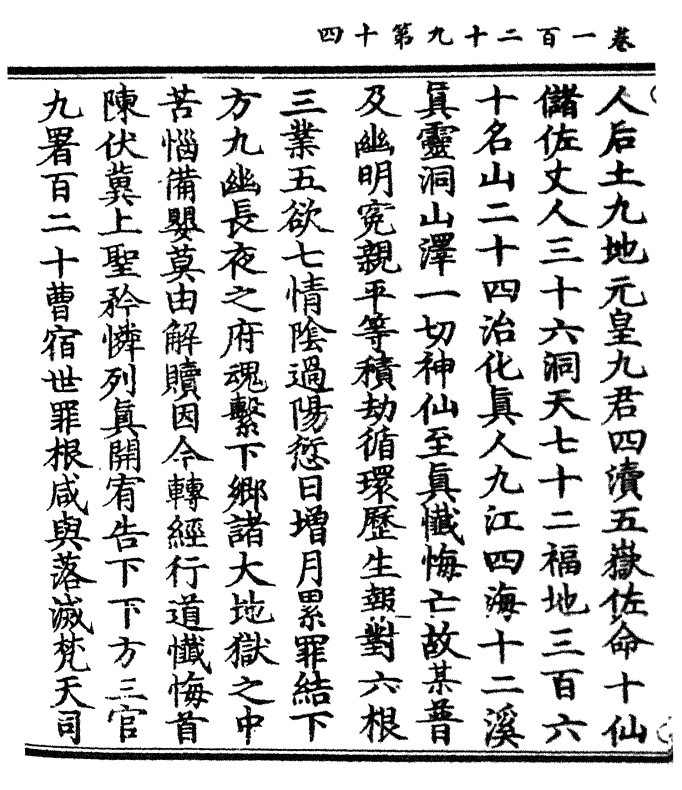 卷一百二十九第十四
人后土九地元皇九君四瀆五嶽佐命十仙
儲佐丈人三十六洞天七十二福地三百六
十名山二十四治化眞人九江四海十二溪
眞靈洞山澤一切神仙至眞懺悔亡故某普
及幽明寃親平等積劫循環歷生報對六根
三業五欲七情陰過陽愆日增月累罪結下
方九幽長夜之府魂繫下鄉諸大地獄之中
苦惱備嬰莫由解贖因今轉經行道懺悔首
陳伏冀上聖矜憐列眞開宥告下下方三官
九署百二十曹宿世罪根咸與落滅梵天司